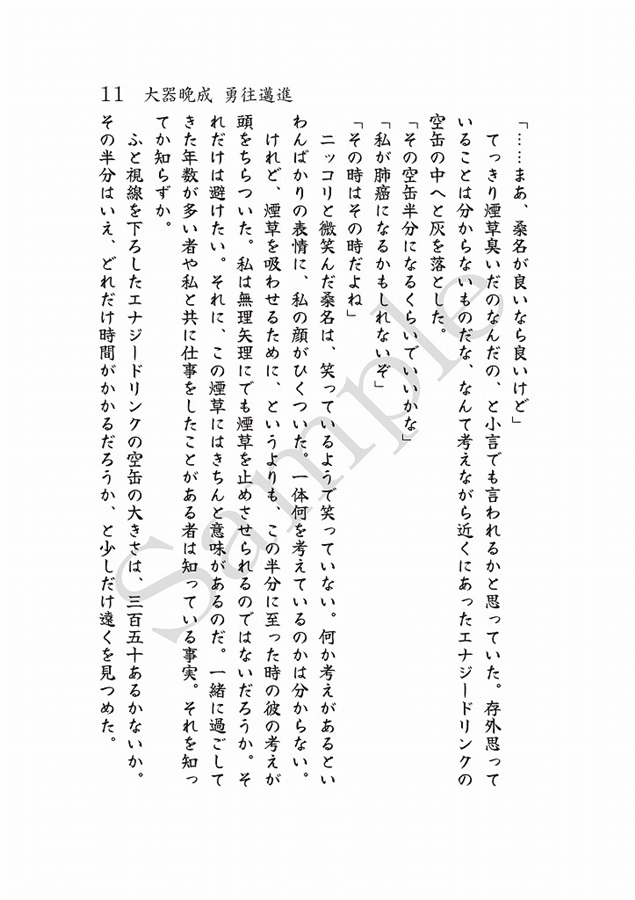 11　大器晩成 勇往邁進
「……まあ、桑名が良いなら良いけど」
　てっきり煙草臭いだのなんだの、と小言でも言われるかと思っていた。存外思って
いることは分からないものだな、なんて考えながら近くにあったエナジードリンクの
空缶の中へと灰を落とした。
「その空缶半分になるくらいでいいかな」
「私が肺癌になるかもしれないぞ」
「その時はその時だよね」
　ニッコリと微笑んだ桑名は、笑っているようで笑っていない。何か考えがあるとい
わんばかりの表情に、私の顔がひくついた。一体何を考えているのかは分からない。
けれど、煙草を吸わせるために、というよりも、この半分に至った時の彼の考えが
頭をちらついた。私は無理矢理にでも煙草を止めさせられるのではないだろうか。そ
れだけは避けたい。それに、この煙草にはきちんと意味があるのだ。一緒に過ごして
きた年数が多い者や私と共に仕事をしたことがある者は知っている事実。それを知っ
てか知らずか。
　ふと視線を下ろしたエナジードリンクの空缶の大きさは、三百五十あるかないか。
その半分はいえ、どれだけ時間がかかるだろうか、と少しだけ遠くを見つめた。
Sample